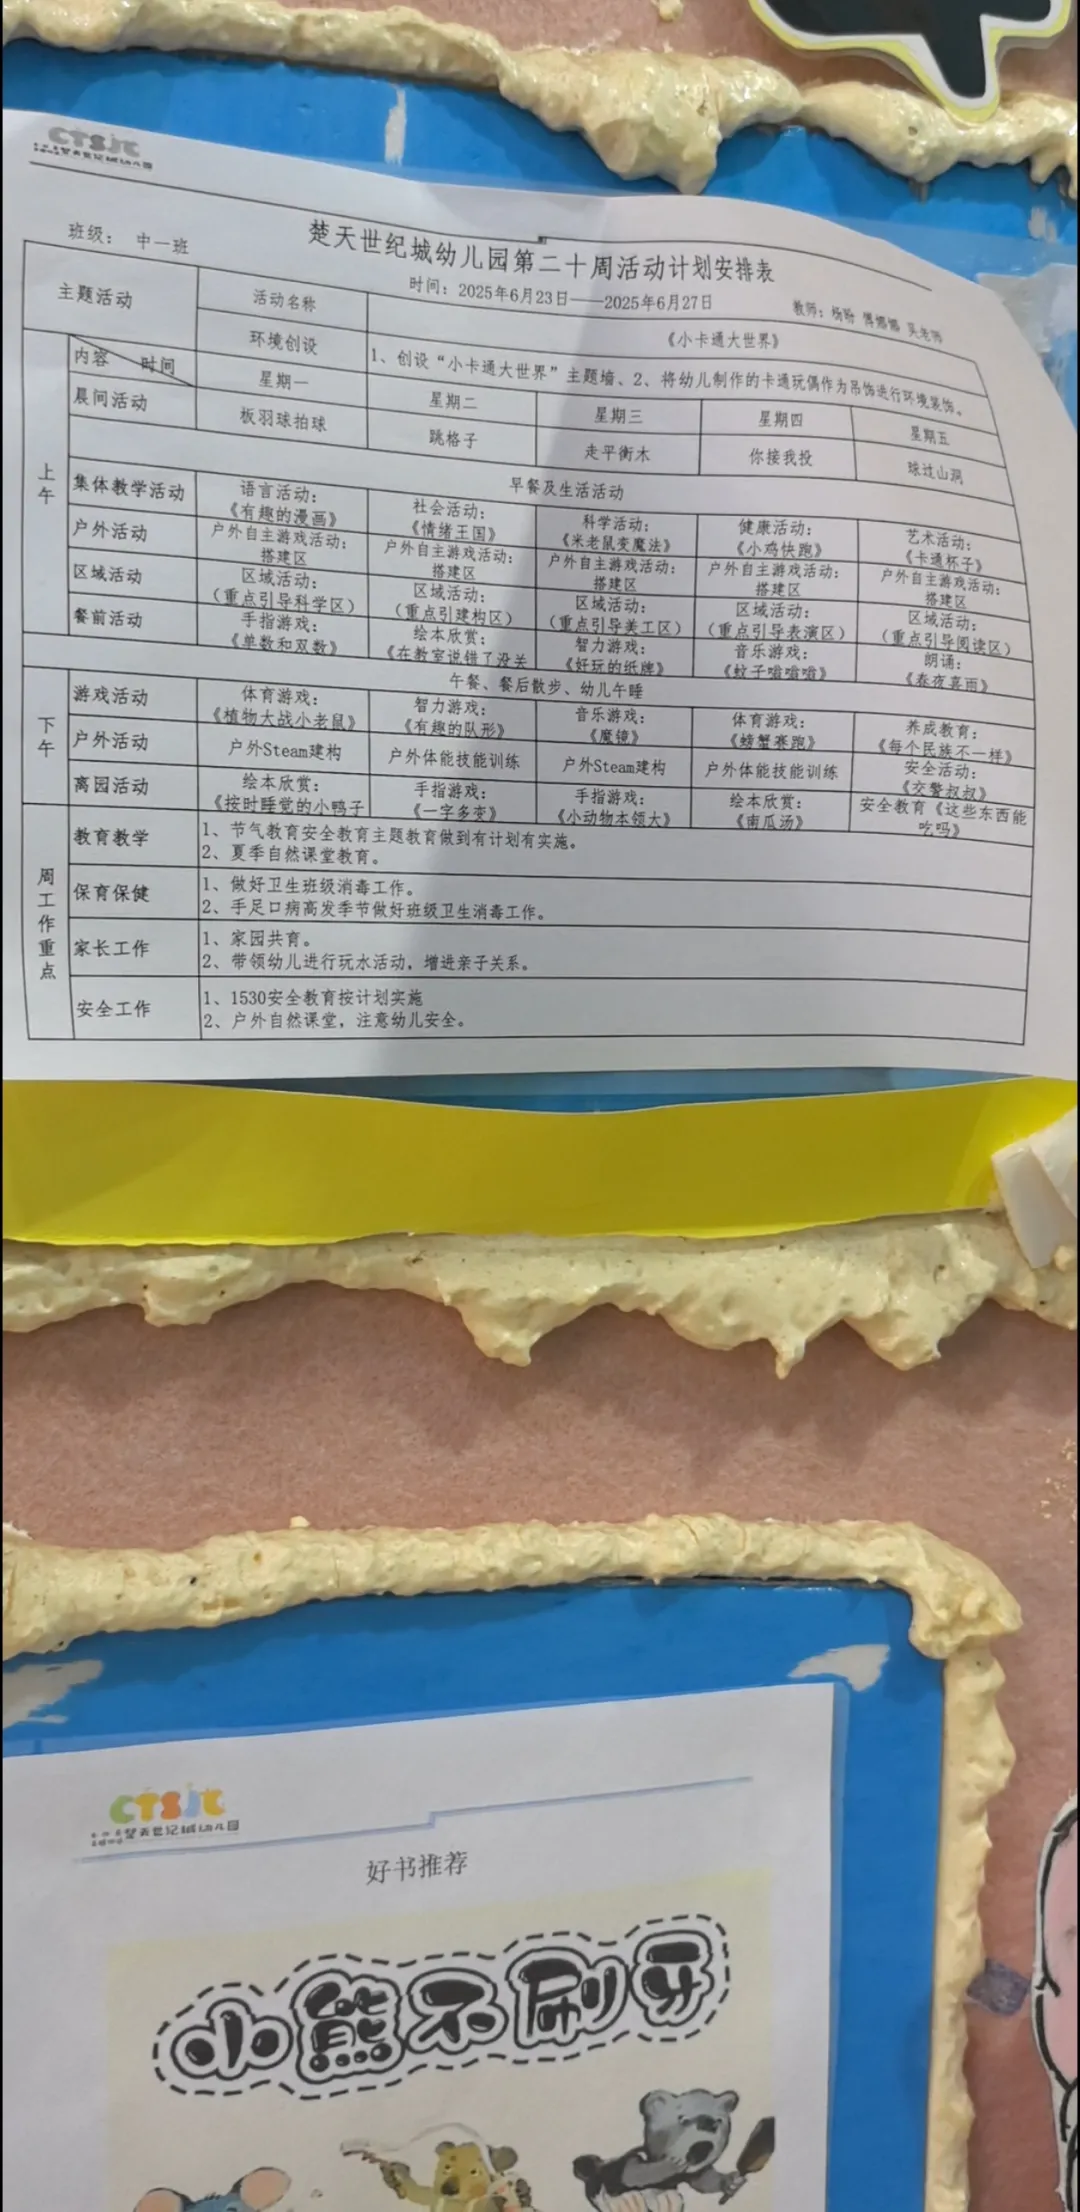 CTSJC
楚天世纪城幼儿园
楚天世纪城幼儿园第二十周活动计划安排表
班级： 中一班
时间：2025年6月23日——2025年6月27日
教师：杨盼 傅娜娜 吴老师
主题活动
活动名称
《小卡通大世界》
环境创设
1、创设“小卡通大世界”主题墙、2、将幼儿制作的卡通玩偶作为吊饰进行环境装饰。
内容 时间 星期一 星期二 星期三 星期四 星期五
上午
晨间活动 板羽球拍球 跳格子 走平衡木 你接我投 球过山洞
早餐及生活活动
集体教学活动 语言活动： 社会活动： 科学活动： 健康活动： 艺术活动：
《有趣的漫画》 《情绪王国》 《米老鼠变魔法》 《小鸡快跑》 《卡通杯子》
户外活动 户外自主游戏活动： 户外自主游戏活动： 户外自主游戏活动： 户外自主游戏活动： 户外自主游戏活动：
搭建区 搭建区 搭建区 搭建区 搭建区
区域活动 区域活动： 区域活动： 区域活动： 区域活动： 区域活动：
（重点引导科学区） （重点引建构区） （重点引导美工区） （重点引导表演区） （重点引导阅读区）
餐前活动 手指游戏： 绘本欣赏： 智力游戏： 音乐游戏： 朗诵：
《单数和双数》 《在教室说错了没关 《好玩的纸牌》 《蚊子嗡嗡嗡》 《春夜喜雨》
午餐、餐后散步、幼儿午睡
下午
游戏活动 体育游戏： 智力游戏： 音乐游戏： 体育游戏： 养成教育：
《植物大战小老鼠》 《有趣的队形》 《魔镜》 《螃蟹赛跑》 《每个民族不一样》
户外活动 户外Steam建构 户外体能技能训练 户外Steam建构 户外体能技能训练 安全活动：
《交警叔叔》
离园活动 绘本欣赏： 手指游戏： 手指游戏： 绘本欣赏： 安全教育《这些东西能
《按时睡觉的小鸭子 《一字多变》 《小动物本领大》 《南瓜汤》 吃吗》
周工作重点
教育教学
1、节气教育安全教育主题教育做到有计划有实施。
2、夏季自然课堂教育。
保育保健
1、做好卫生班级消毒工作。
2、手足口病高发季节做好班级卫生消毒工作。
家长工作
1、家园共育。
2、带领幼儿进行玩水活动，增进亲子关系。
安全工作
1、1530安全教育按计划实施
2、户外自然课堂，注意幼儿安全。
CTSJC
楚天世纪城幼儿园
好书推荐
小熊不刷牙